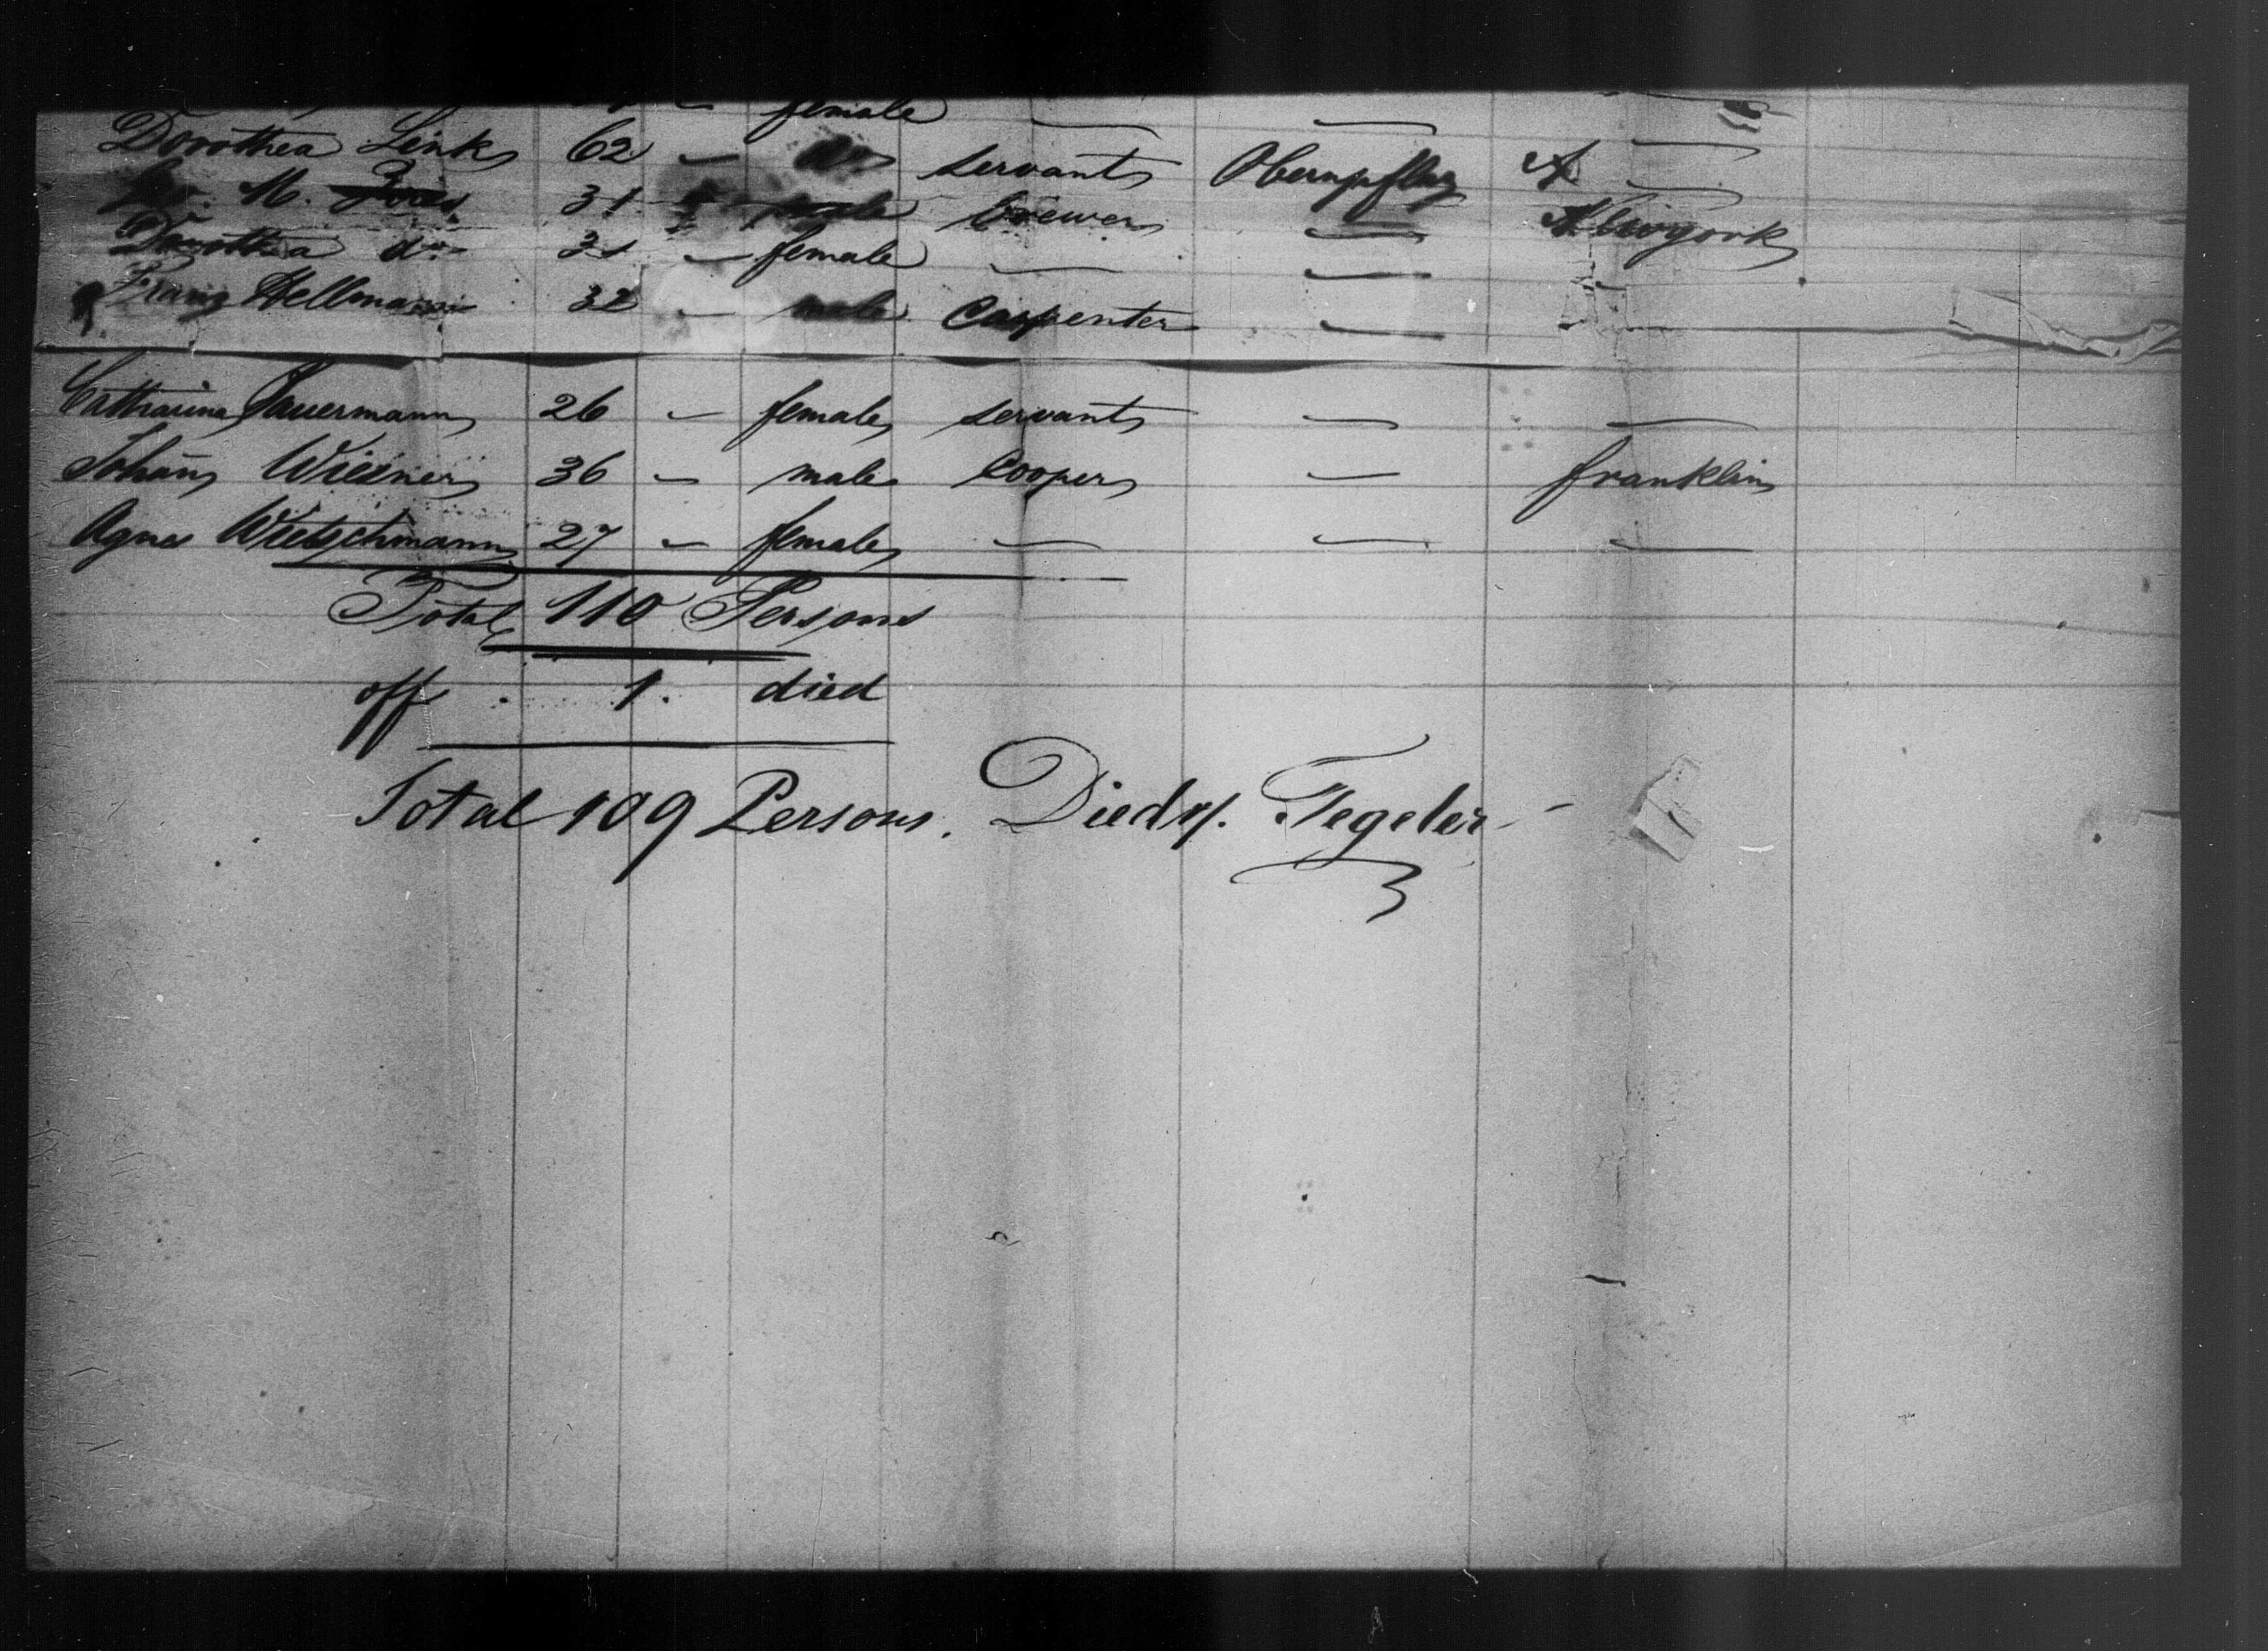 female
Dorothea Link 62 — do servant Obernpflag
M. 31 male brewer — Newyork
Dorothea do 31 — female — —
Franz Hellmann 32 — male Carpenter —
Catharina Sauermann 26 — female servant — —
Johann Wiesner 36 — male Cooper — franklin
Agnes Wietschmann 27 — female — — —
Total 110 Persons
off . 1. died
Total 109 Persons. Diedr. Tegeler